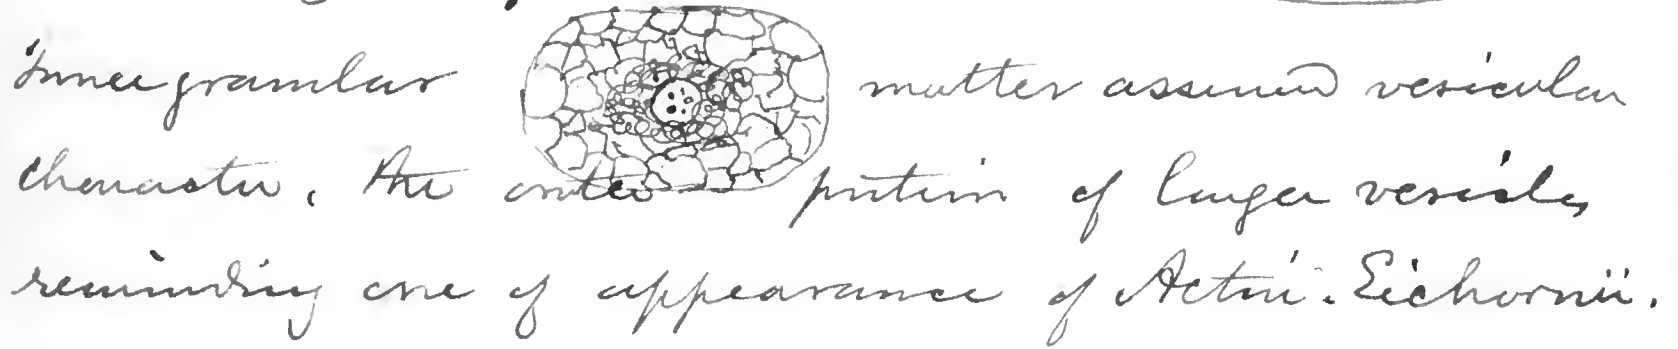 Inner granular matter assumed vesicular
character, the outer portion of larger vesicles
reminding one of appearance of Actin. Eichornii.